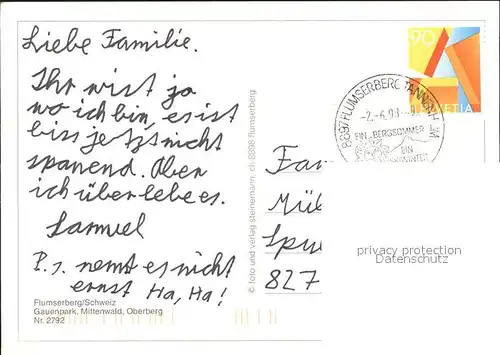 Liebe Familie.
Ihr wist ja
wo ich bin, es ist
biss jetzt nicht
spanend. Aber
ich überlebe es.
Samuel
P.s. nemt es nicht
ernst Ha, Ha!
Flumserberg/Schweiz
Gauenpark, Mittenwald, Oberberg
Nr. 2792
© foto und verlag steinemann, ch-8898 flumserberg
90
HELVETIA
8897 FLUMSERBERG TANNENHEIM
EIN BERGSOMMER
EIN
Fam
Mül
Spu
827
privacy protection
Datenschutz